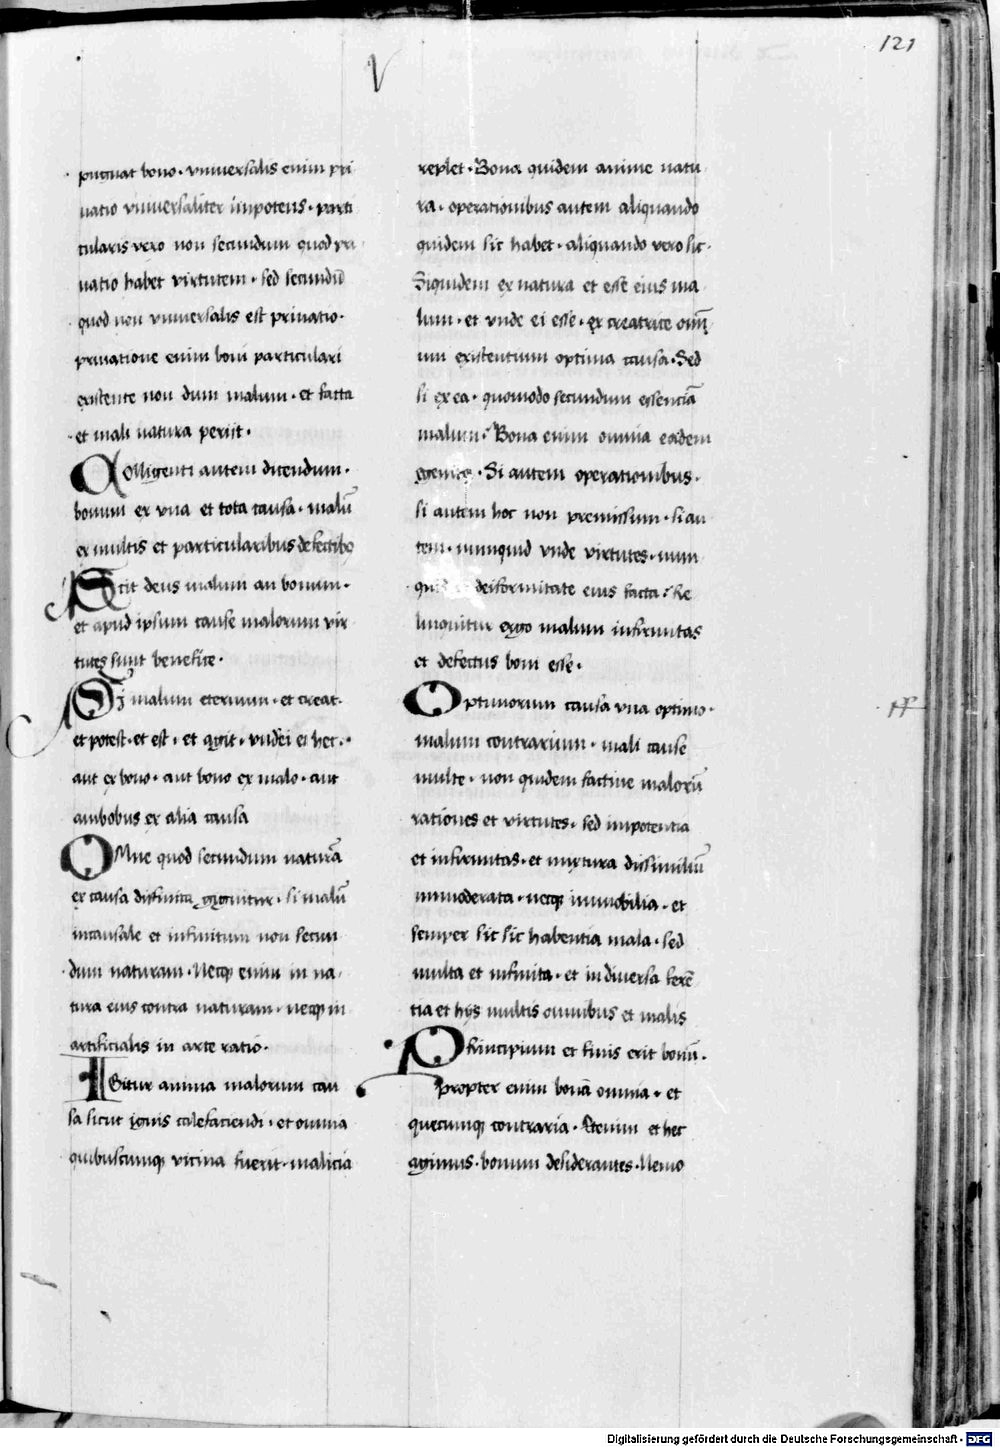 121
V
pugnat bono · vniuersalis enim pri
uatio vniuersaliter impotens · parti
cularis vero non secundum quod pri
uatio habet virtutem · sed secundū
quod non vniuersalis est priuatio ·
priuatione enim boni particulari
existente non dum malum · et facta
et mali natura periit ·
Colligenti autem dicendum ·
bonum ex vna et tota causa · malū
ex multis et particularibus defectibꝯ
Scit deus malum an bonum ·
et apud ipsum cause malorum vir
tutes sunt benefice ·
Si malum eternum · et creat ·
et potest · et est · et agit · vnde ei hec ·
aut ex bono · aut bono ex malo · aut
ambobus ex alia causa
OMne quod secundum naturā
ex causa diffinita gignitur · si malū
incausale et infinitum non secun
dum naturam · Neqꝫ enim in na
tura eius contra naturam · neqꝫ in
artificialis in arte ratio ·
IGitur anima malorum cau
sa sicut ignis calefaciendi · et omnia
quibuscumqꝫ vicina fuerit · malicia
replet · Bona quidem anime natu
ra · operationibus autem aliquando
quidem sic habet · aliquando vero sic ·
Siquidem ex natura et esse eius ma
lum · et vnde ei esse · ex creatrice omī
um existentium optima causa · Sed
si ex ea · quomodo secundum essenciā
malum · Bona enim omnia eadem
Si autem operationibus ·
si autem hoc non premissum · si au
tem · numquid vnde virtutes · num
deiformitate eius facta · Re
linquitur ergo malum infirmitas
et defectus boni esse ·
Optimorum causa vna optimo ·
malum contrarium · mali cause
multe · non quidem factiue malorū
rationes et virtutes · sed impotentia
et infirmitas · et mixtura dissimiliū
immoderata · neqꝫ immobilia · et
semper sic sic habentia mala · sed
multa et infinita · et in diuersa ferē
tia et hijs multis omnibus et malis
PRincipium et finis erit bonū ·
propter enim bonā omnia · et
quecumqꝫ contraria · Etenim et hec
agimus · bonum desiderantes · Nemo
Digitalisierung gefördert durch die Deutsche Forschungsgemeinschaft - DFG